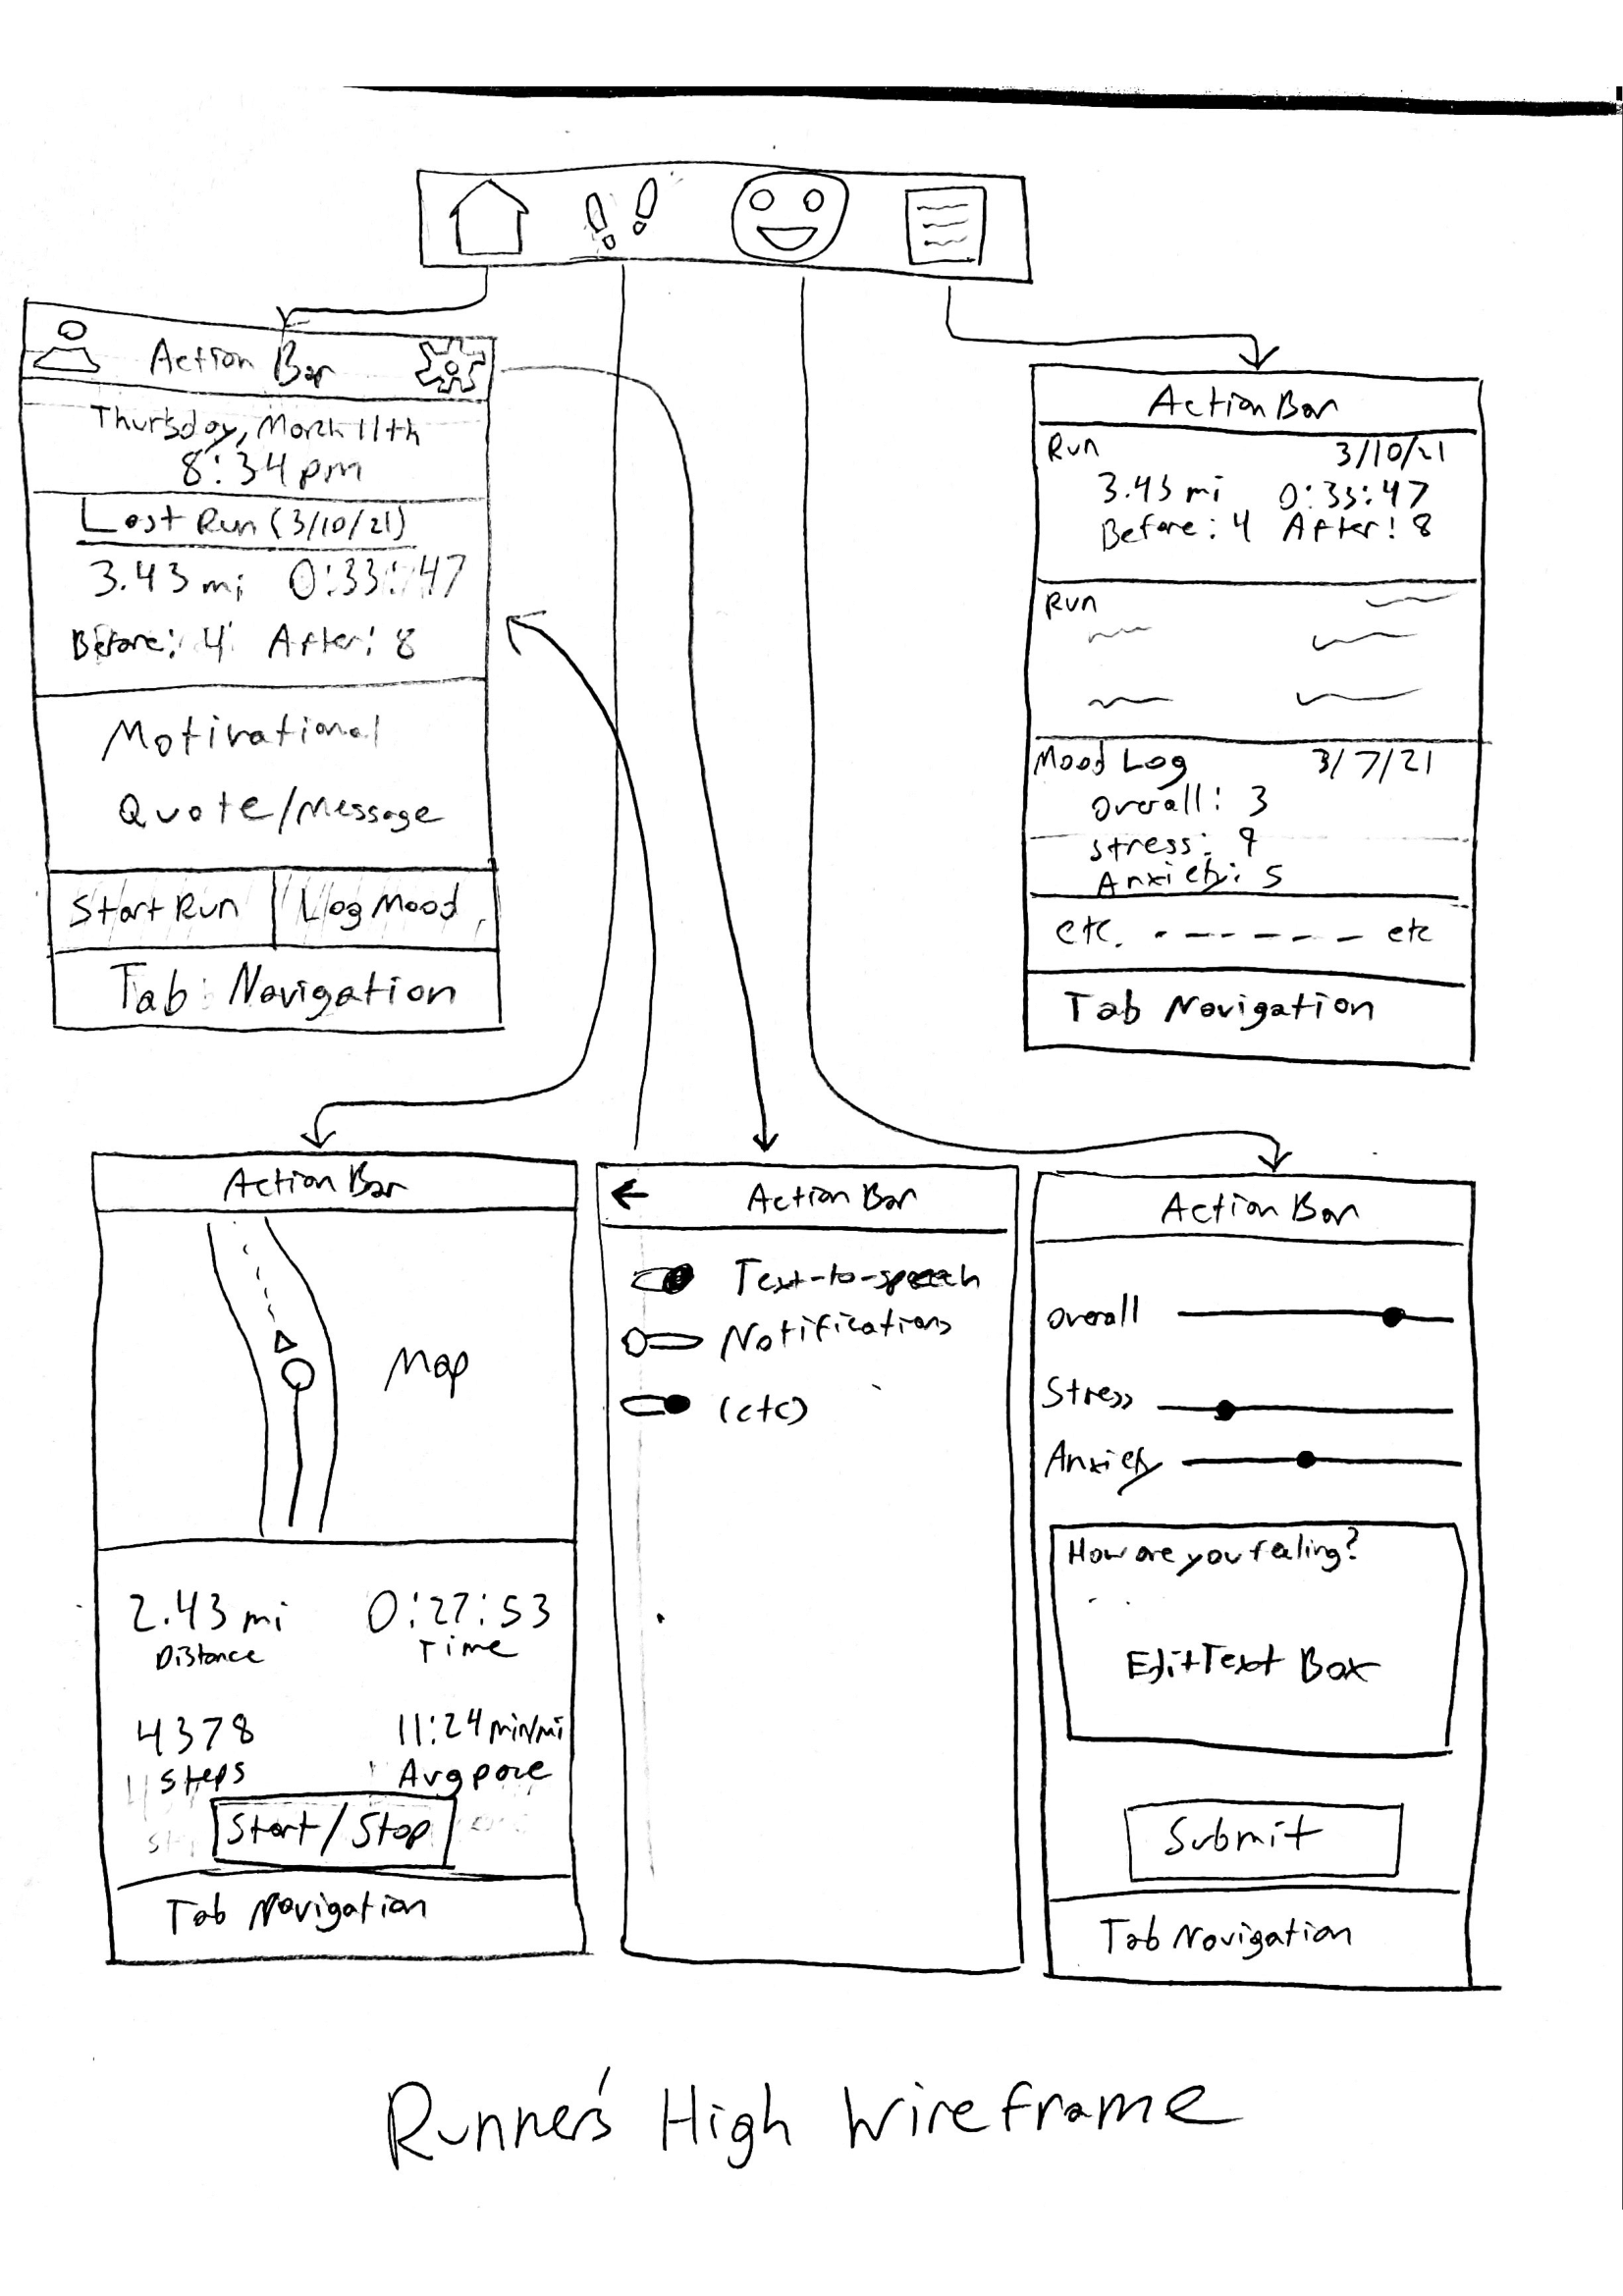 Action Bar
Thursday, March 11th
8:34 pm
Last Run (3/10/21)
3.43 mi 0:33:47
Before: 4 After: 8
Motivational
Quote/Message
Start Run Log Mood
Tab Navigation
Action Bar
Run 3/10/21
3.43 mi 0:33:47
Before: 4 After: 8
Run
Mood Log 3/7/21
Overall: 3
Stress: 9
Anxiety: 5
etc. etc
Tab Navigation
Action Bar
Map
2.43 mi 0:27:53
Distance Time
4378 11:24 min/mi
Steps Avg pace
Start/Stop
Tab Navigation
Action Bar
Text-to-speech
Notifications
(etc)
Action Bar
Overall
Stress
Anxiety
How are you feeling?
EditText Box
Submit
Tab Navigation
Runner's High Wireframe